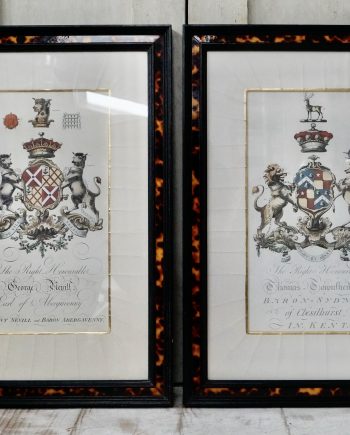 The Right Honourable
George Nevill
Earl of Abergavenny
NEVILL and BARON ABERGAVENNY
The Right Honou
Thomas Townshend
BARON SYDN
of Chislehurst
IN KENT